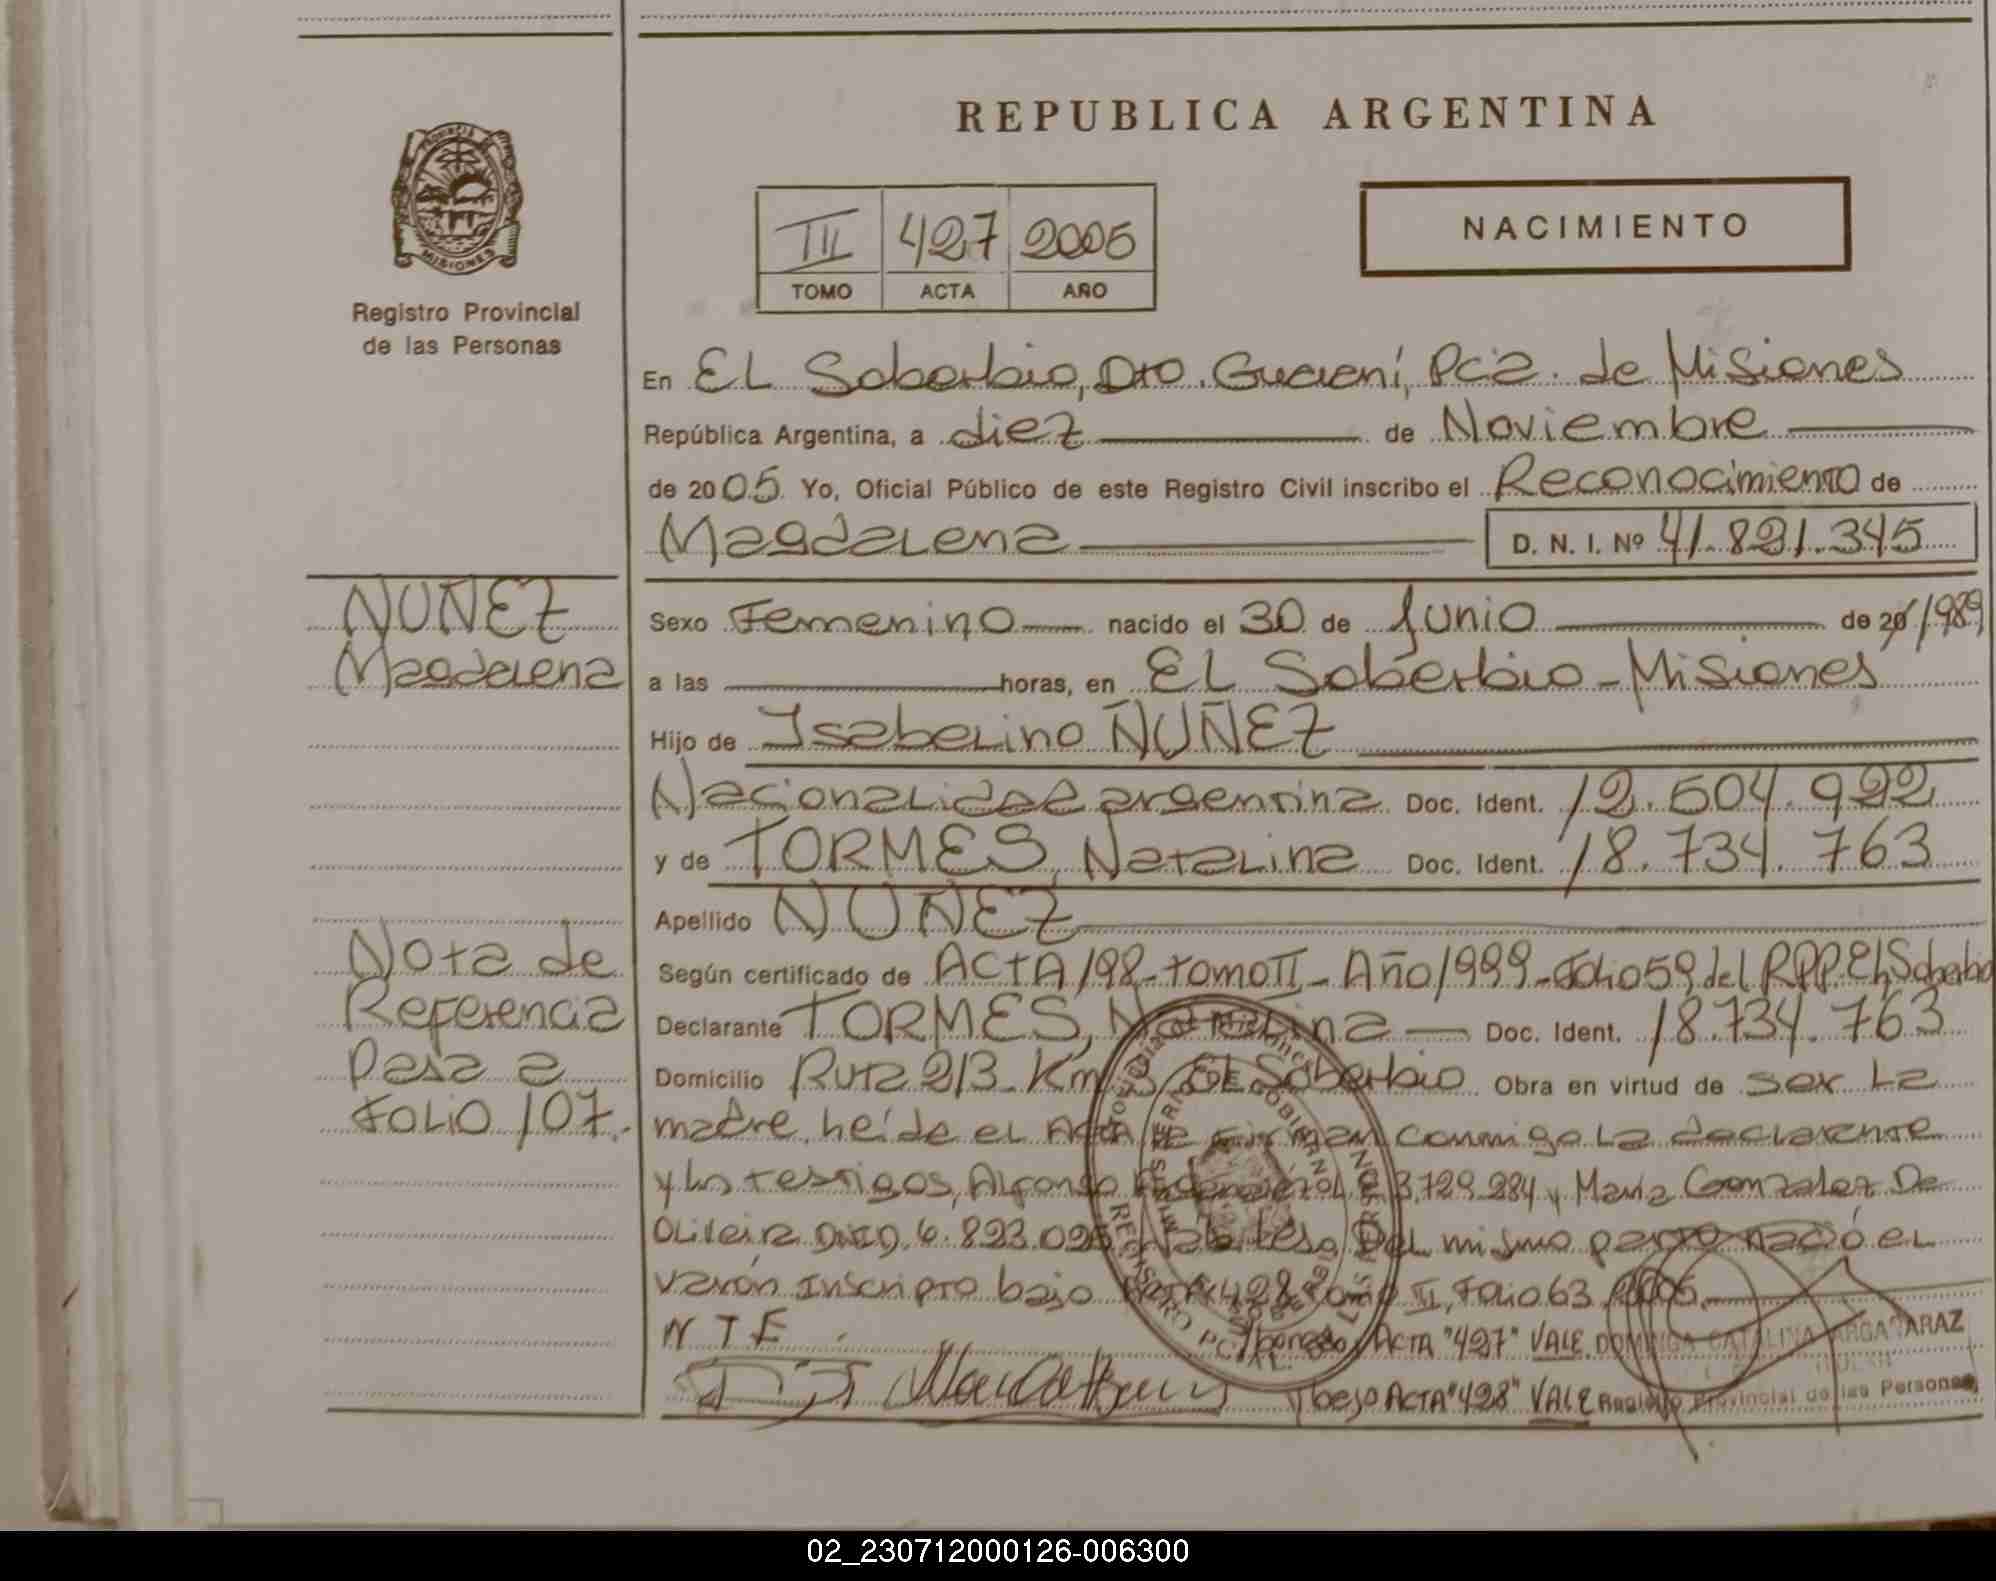 REPUBLICA ARGENTINA
PROVINCIA
MISIONES
Registro Provincial
de las Personas
III 427 2005
TOMO ACTA AÑO
NACIMIENTO
En EL Soberbio, Dto. Guaraní, Pcia. de Misiones
República Argentina, a diez de Noviembre
de 2005 Yo, Oficial Público de este Registro Civil inscribo el Reconocimiento de
Magdalena D. N. I. Nº 41.821.345
NUÑEZ
Magdalena
Sexo Femenino nacido el 30 de Junio de 20/1989
a las horas, en EL Soberbio - Misiones
Hijo de Isabelino ÑUÑEZ
Nacionalidad argentina Doc. Ident. 12.504.922
y de TORMES, Natalina Doc. Ident. 18.734.763
Apellido NUÑEZ
Nota de
Referencia
Pasa a
FOLIO 107.-
Según certificado de ACTA 198 - tomo II - Año 1999 - Folio 59 del RPP. EL Soberbio
Declarante TORMES, Natalina Doc. Ident. 18.734.763
Domicilio Ruta 2/3 - Km EL Soberbio Obra en virtud de ser La
madre, leída el Acta la firman conmigo La declarante
y los testigos, Alfonso 3.729.284 y María Gonzalez De
Oliveira 6.893.095 Del mismo parto nació el
varón Inscripto bajo Acta 428 Tomo III, Folio 63 2005.
NTF
ACTA "427" VALE. DOMINGA CATALINA ARGAÑARAZ
TITULAR
bajo ACTA "428" VALE Registro Provincial de las Personas
02_230712000126-006300